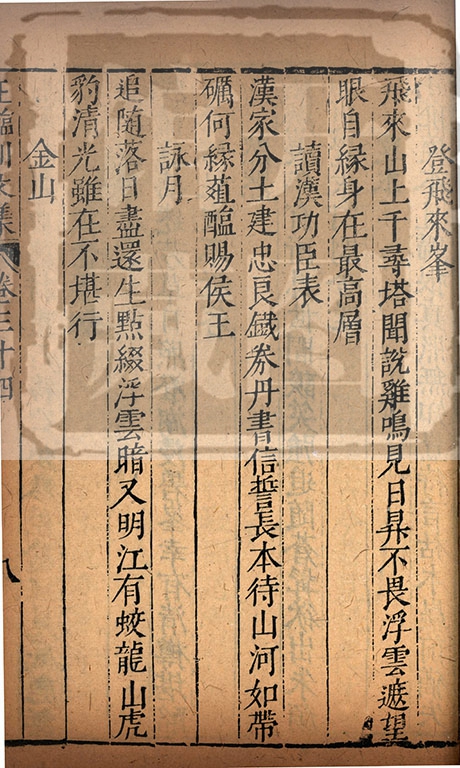 登飛來峯
飛來山上千尋塔聞說雞鳴見日昇不畏浮雲遮望
眼自縁身在最高層
讀漢功臣表
漢家分土建忠良鐵券丹書信誓長本待山河如帶
礪何縁葅醢賜侯王
詠月
追隨落日盡還生點綴浮雲暗又明江有蛟龍山虎
豹清光雖在不堪行
金山
王臨川文集 卷三十四
八